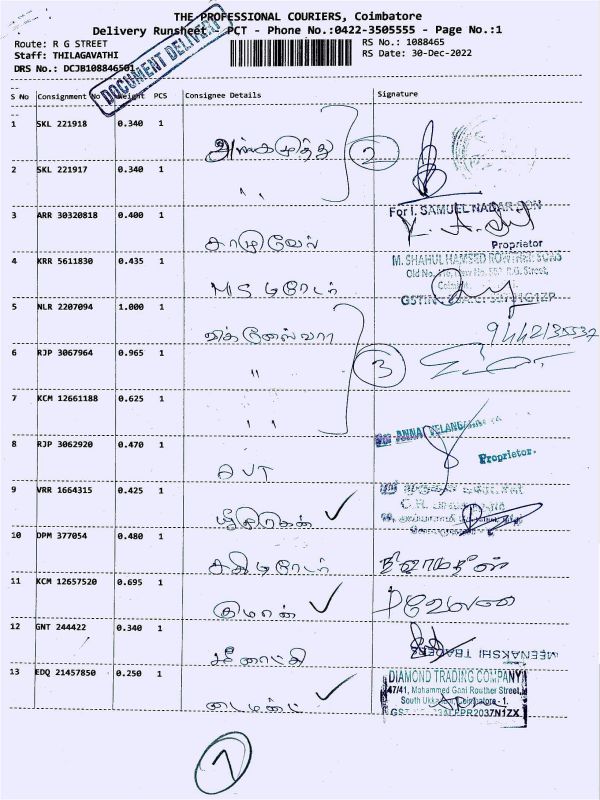 THE PROFESSIONAL COURIERS, Coimbatore
Delivery Runsheet - PCT - Phone No.:0422-3505555 - Page No.:1
Route: R G STREET
RS No.: 1088465
Staff: THILAGAVATHI
RS Date: 30-Dec-2022
DRS No.: DCJB108846501
DOCUMENT DELIVERY
S No Consignment No Weight PCS Consignee Details Signature
1 SKL 221918 0.340 1
அங்கமுத்து 2
2 SKL 221917 0.340 1
" "
For I. SAMUEL NADAR SON
3 ARR 30320818 0.400 1
Proprietor
4 KRR 5611830 0.435 1
M. SHAHUL HAMEED ROWTHER SONS
R.G. Street,
MS டிரேடர்
5 NLR 2207094 1.000 1
விக்னேஸ்வரா
6 RJP 3067964 0.965 1
" 3
7 KCM 12661188 0.625 1
" "
ANNA
8 RJP 3062920 0.470 1
Proprietor.
AVT
9 VRR 1664315 0.425 1
10 DPM 377054 0.480 1
11 KCM 12657520 0.695 1
குமரன்
12 GNT 244422 0.340 1
மீனாட்சி
MEENAKSHI TRADERS
13 EDQ 21457850 0.250 1
DIAMOND TRADING COMPANY
47/41, Mohammed Gani Routher Street,
South Ukkadam, Coimbatore - 1.
டைமண்ட்
7